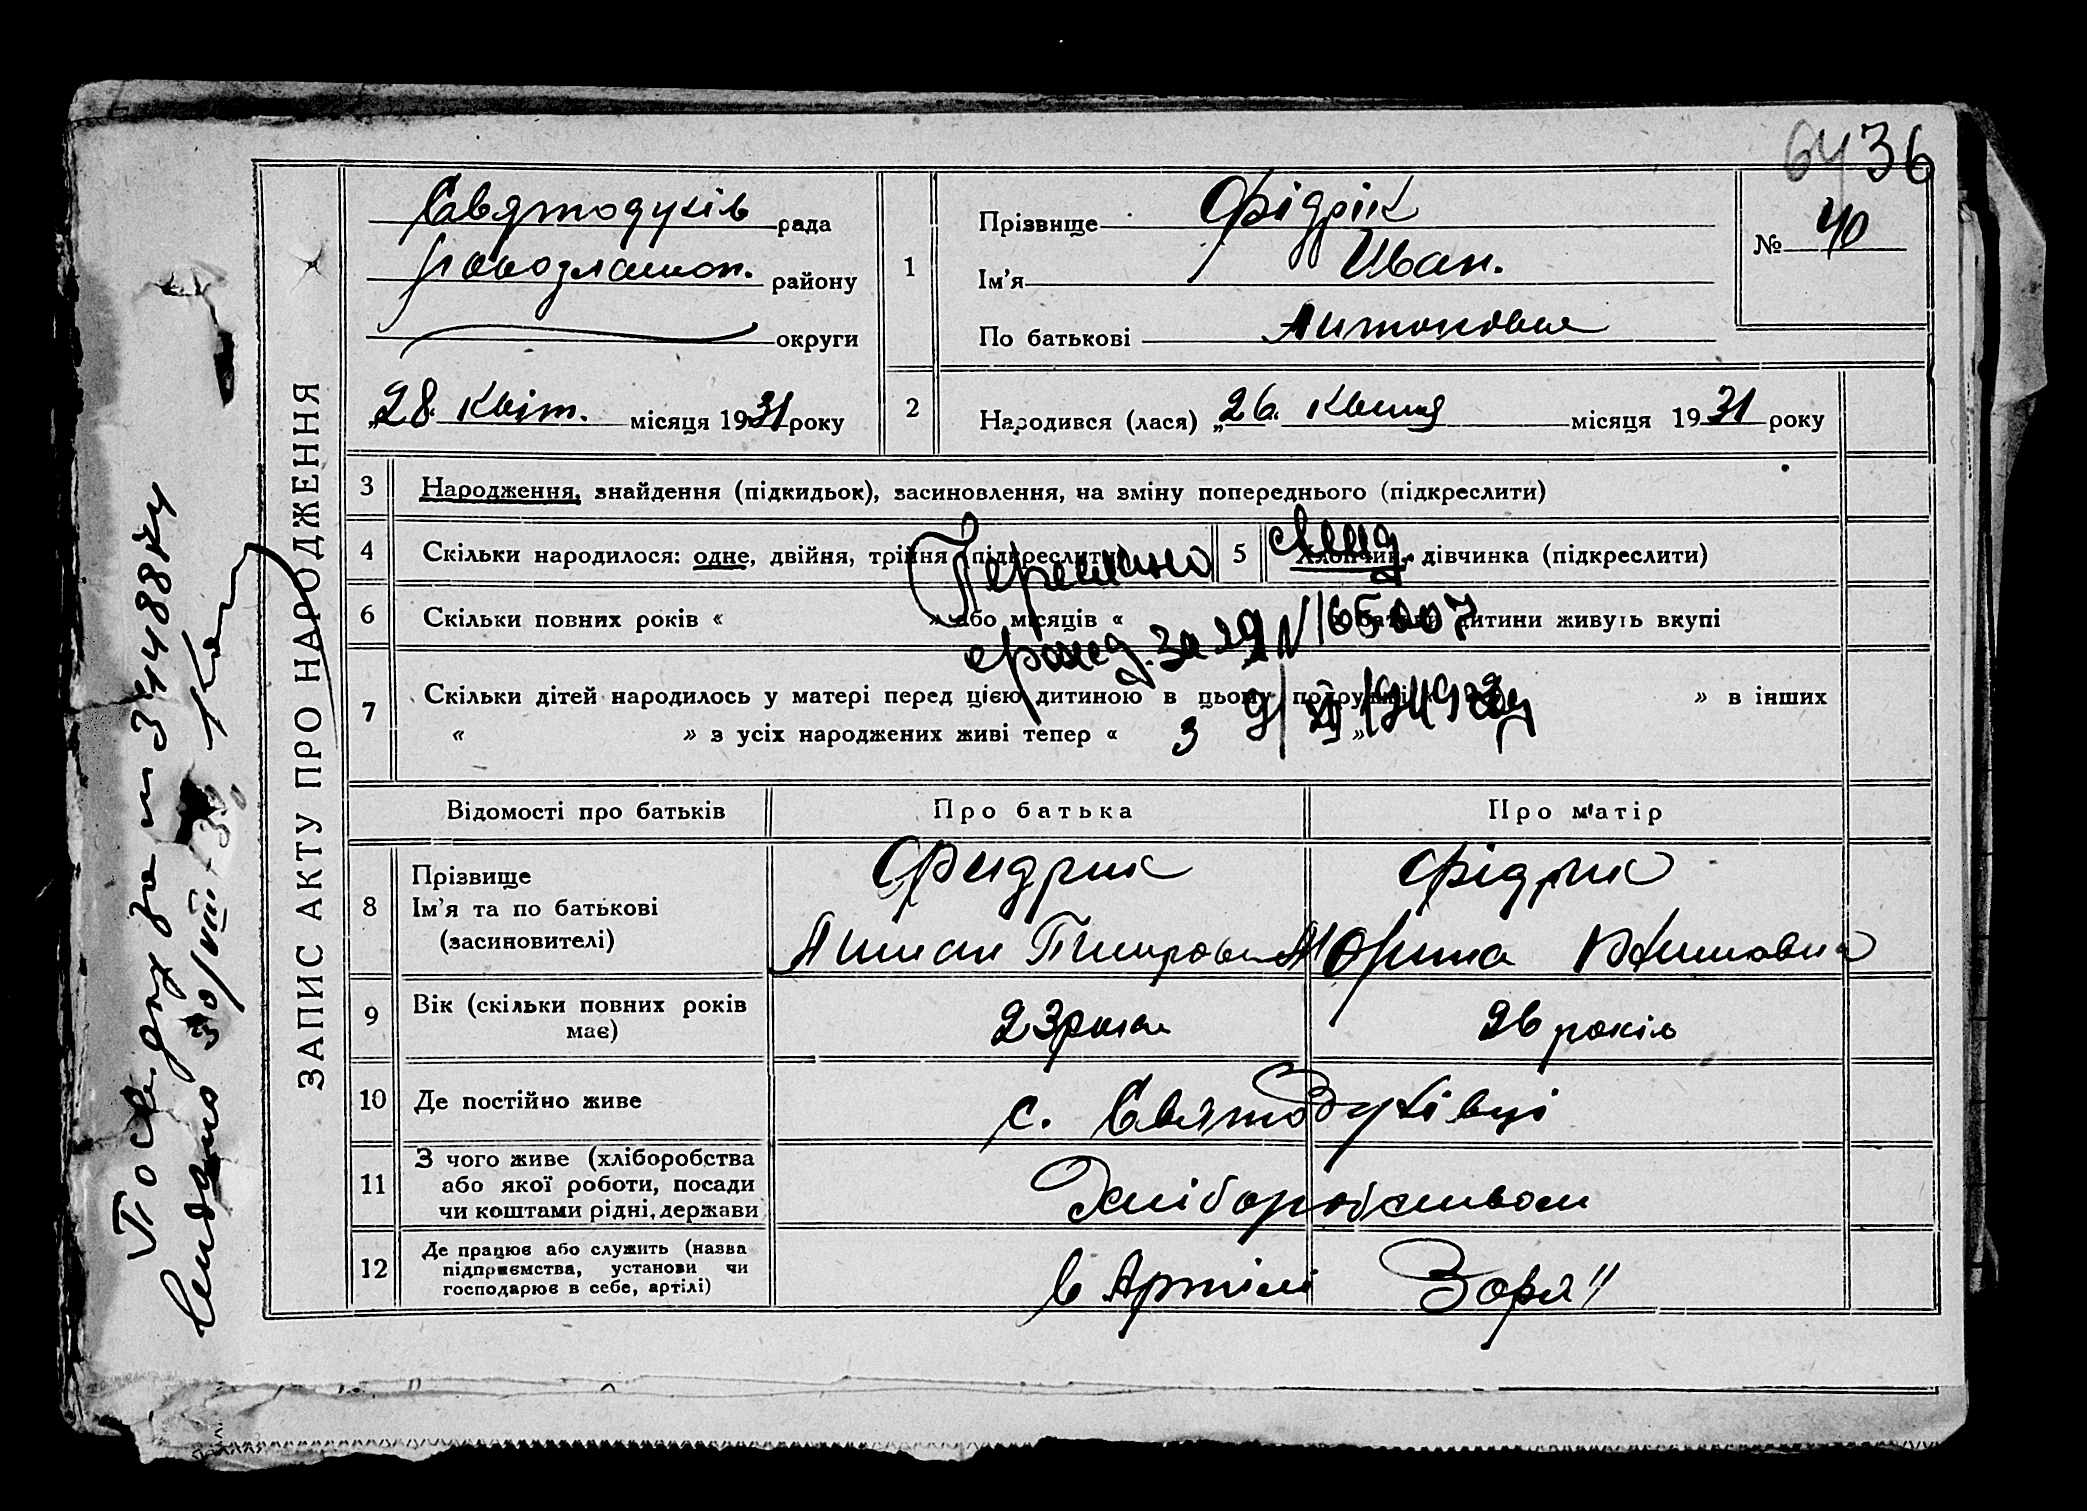 6436
Святодухів рада
району
округи
„28. квіт. місяця 1931 року
1
Прізвище Фідрік
Ім'я Иван.
По батькові Антонович
№ 40
2
Народився (лася) „26. квітня місяця 1931 року
ЗАПИС АКТУ ПРО НАРОДЖЕННЯ
3 Народження, знайдення (підкидьок), засиновлення, на зміну попереднього (підкреслити)
4 Скільки народилося: одне, двійня, трійня (підкреслити)
5 Хлопчик, дівчинка (підкреслити)
6 Скільки повних років « » або місяців « батьки дитини живуть вкупі
7 Скільки дітей народилось у матері перед цією дитиною в цьому подружжі » в інших
« » з усіх народжених живі тепер « 3 »
свид.
рожд. за 29 № 165007
9/XII 1949
Відомості про батьків
Про батька
Про матір
8 Прізвище
Ім'я та по батькові
(засиновителі)
Фидрик
Антон
Фідрик
Орина
9 Вік (скільки повних років має)
23 роки
26 років
10 Де постійно живе
с. Святодухівці
11 З чого живе (хліборобства
або якої роботи, посади
чи коштами рідні, держави
Хліборобством
12 Де працює або служить (назва
підприємства, установи чи
господарює в себе, артілі)
в Артілі Зоря"
за № 314884
видано 30/VIII